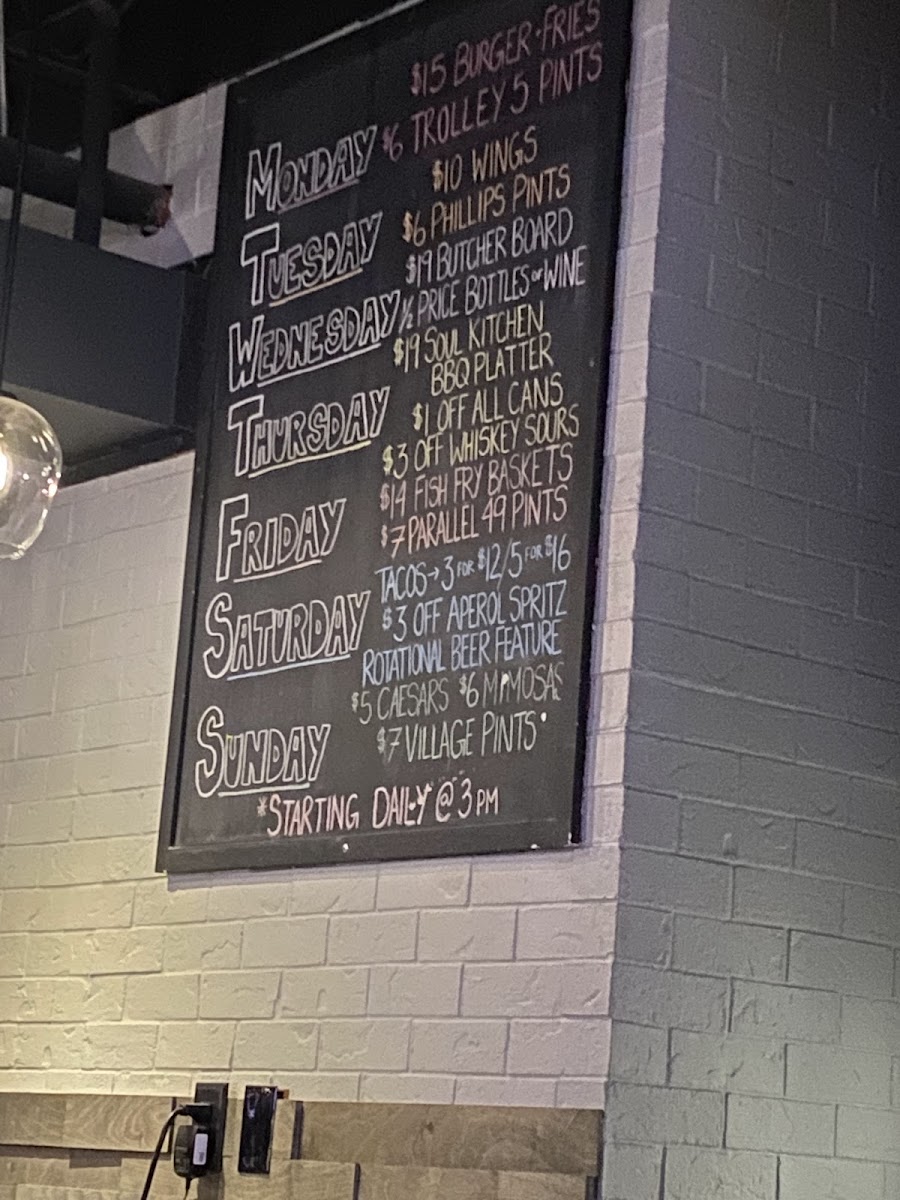 $15 BURGER + FRIES
MONDAY $6 TROLLEY 5 PINTS
$10 WINGS
TUESDAY $6 PHILLIPS PINTS
$19 BUTCHER BOARD
WEDNESDAY ½ PRICE BOTTLES OF WINE
$19 SOUL KITCHEN
BBQ PLATTER
THURSDAY $1 OFF ALL CANS
$3 OFF WHISKEY SOURS
$14 FISH FRY BASKETS
FRIDAY $7 PARALLEL 49 PINTS
TACOS → 3 FOR $12/5 FOR $16
SATURDAY $3 OFF APEROL SPRITZ
ROTATIONAL BEER FEATURE
$5 CAESARS $6 MIMOSAS
SUNDAY $7 VILLAGE PINTS
*STARTING DAILY @ 3 PM